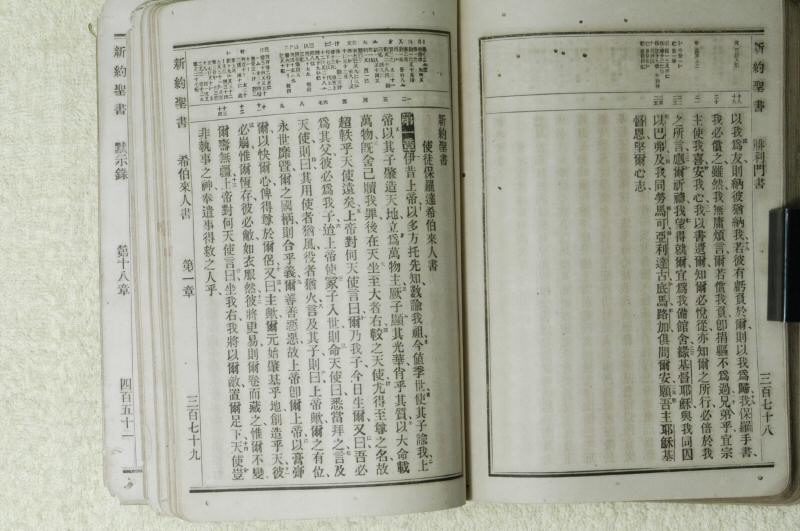 新約聖書
腓利門書
三百七十八
以我爲友則納彼猶納我若彼有虧負於爾則以我爲歸我保羅手書、
我必償之雖然我無庸煩言爾若償我負卽捐軀不爲過兄弟乎宜宗
主使我喜安我心我以書遺爾知爾必悅從亦知爾之所行必倍於我
之所言應爾祈禱我望得就爾宜爲我備館舍緣基督耶穌與我同囚
以巴弗及我同勞馬可亞利達古底馬路加俱問爾安願吾主耶穌基
督恩堅爾心志
新約聖書
希伯來人書
第一章
三百七十九
新約聖書
使徒保羅達希伯來人書
第一章伊昔上帝以多方托先知數諭我祖今値季世使其子諭我上
帝以其子肇造天地立爲萬物主厥子顯其光華肖乎其質以大命載
萬物旣舍己贖我罪後在天坐至大者右較之天使尤得至尊之名故
超軼乎天使遠矣上帝對何天使言曰爾乃我子今日生爾又曰吾必
爲其父彼必爲我子迨上帝使冢子入世則命天使曰悉當拜之言及
天使則曰其用使者猶風役者猶火言及其子則曰上帝歟爾之有位、
永世靡曁爾之國柄則合乎義爾善善惡惡故上帝卽爾上帝以膏膏
爾以快爾心俾得尊於爾侶又曰主歟爾元始肇基乎地創造乎天彼
必崩惟爾恆存彼必敝如衣服然彼將更易則爾卷而藏之惟爾不變
爾壽無疆上帝對何天使言曰坐我右我將以爾敵置爾足下天使豈
非執事之神奉遣事得救之人乎
新約聖書
默示錄
第十八章
四百五十一